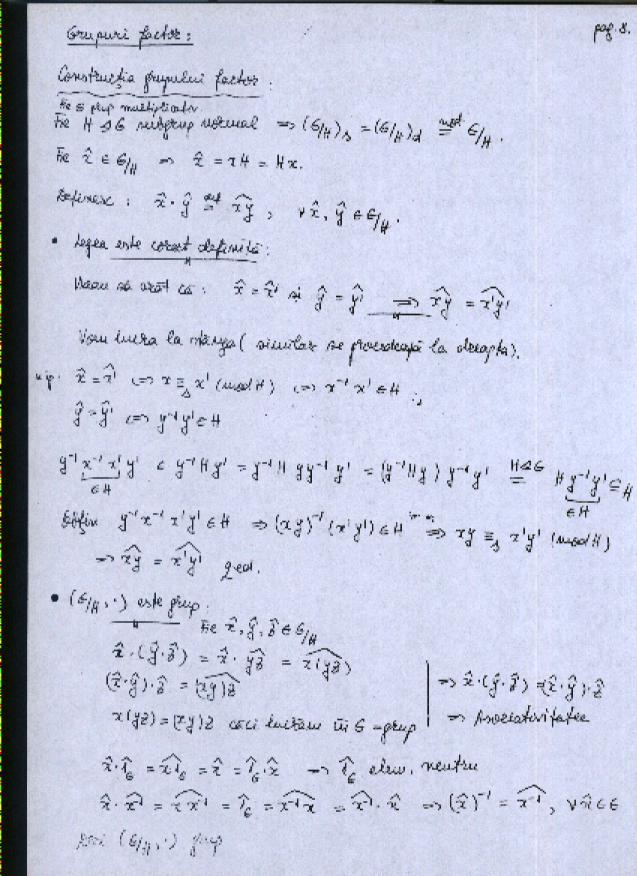 pag. 8.
Grupuri factor:
Construcția grupului factor:
Fie G grup multiplicativ
Fie H ⊴ G subgrup normal ⇒ (G/H)ₛ = (G/H)d not= G/H.
Fie x̂ ∈ G/H ⇒ x̂ = xH = Hx.
Definesc: x̂·ŷ def= x͡y, ∀ x̂, ŷ ∈ G/H.
• Legea este corect definită:
Vreau să arăt că: x̂ = x̂' și ŷ = ŷ' ⇒ x͡y = x͡'y'
Vom lucra la stânga (similar se procedează la dreapta).
ip. x̂ = x̂' ⇔ x ≡ₛ x' (mod H) ⇔ x⁻¹x' ∈ H
ŷ = ŷ' ⇔ y⁻¹y' ∈ H
y⁻¹x⁻¹x'y' ∈ y⁻¹Hy' = y⁻¹H yy⁻¹y' = (y⁻¹Hy) y⁻¹y' H⊴G = H y⁻¹y' ⊆ H
∈H ∈H
y⁻¹x⁻¹x'y' ∈ H ⇒ (xy)⁻¹(x'y') ∈ H ⇒ xy ≡ₛ x'y' (mod H)
⇒ x͡y = x͡'y' qed.
• (G/H, ·) este grup:
Fie x̂, ŷ, ẑ ∈ G/H
x̂·(ŷ·ẑ) = x̂·y͡z = x͡(yz)
(x̂·ŷ)·ẑ = (x͡y)z ⇒ x̂·(ŷ·ẑ) = (x̂·ŷ)·ẑ
x(yz) = (xy)z căci lucrăm în G-grup ⇒ Asociativitatea
x̂·1̂_G = x͡1_G = x̂ = 1̂_G·x̂ ⇒ 1̂_G elem. neutru
x̂·x͡⁻¹ = x͡x⁻¹ = 1̂_G = x͡⁻¹x = x͡⁻¹·x̂ ⇒ (x̂)⁻¹ = x͡⁻¹, ∀ x̂ ∈ G
Deci (G/H, ·) grup